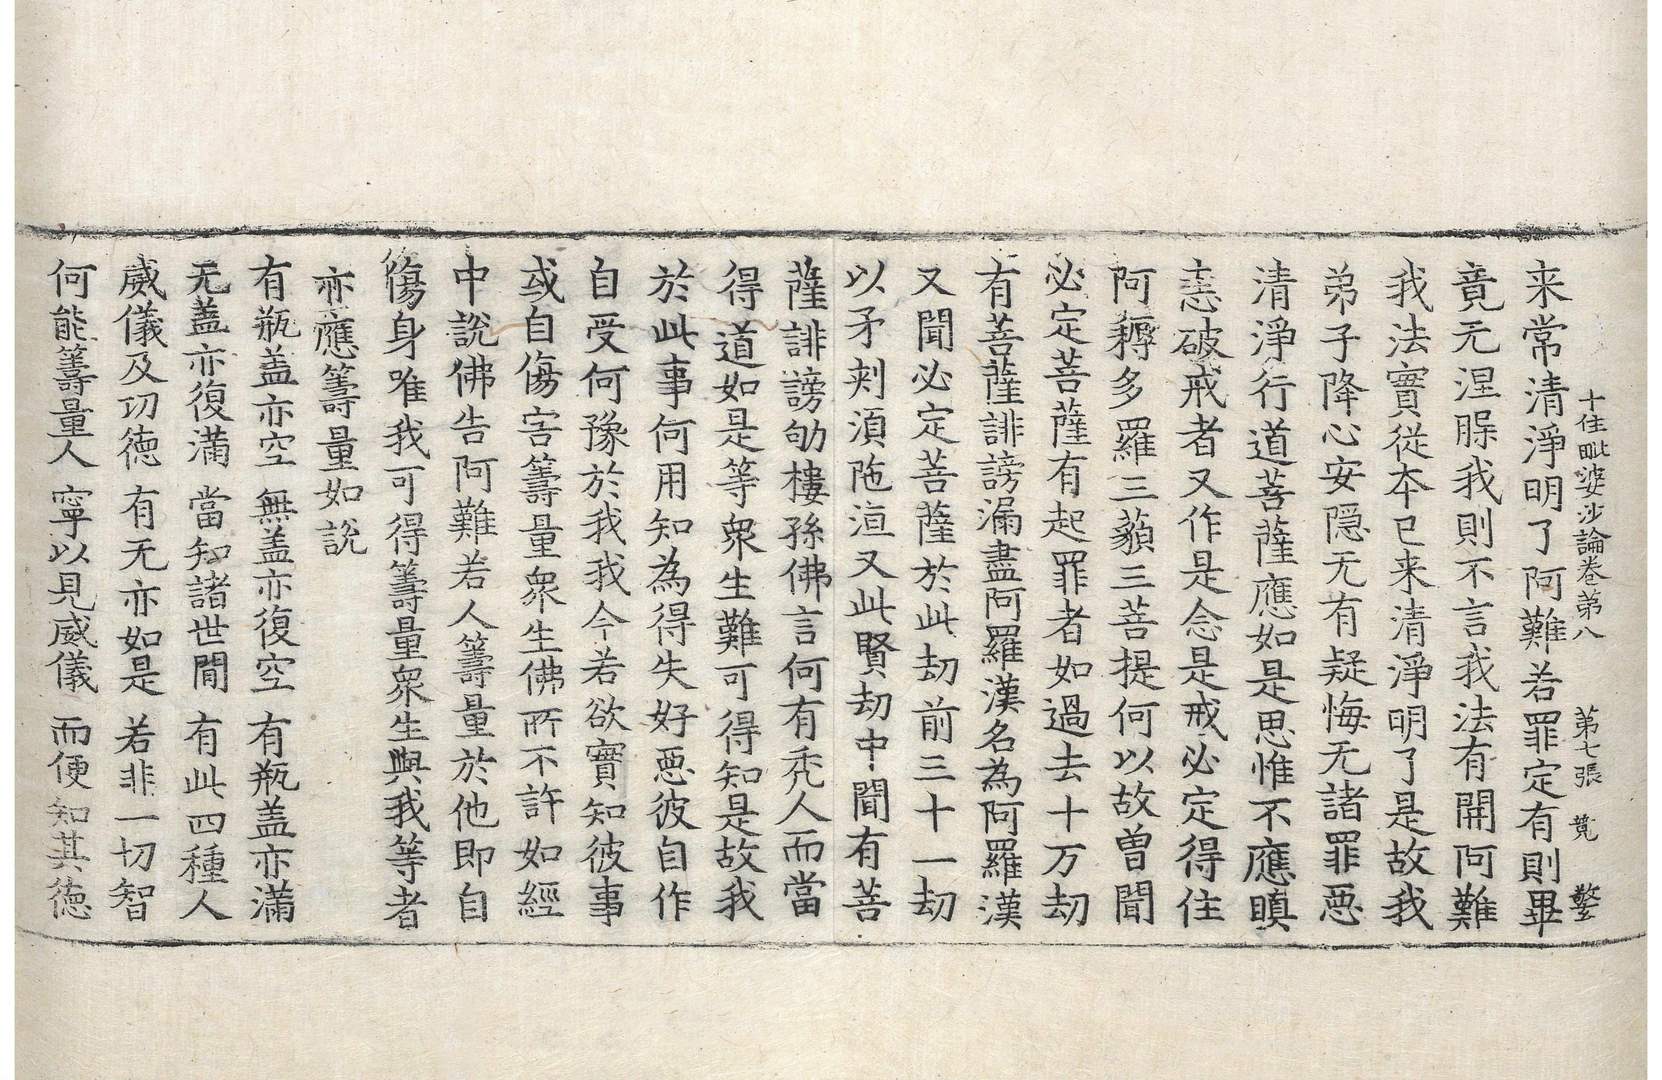 十住毗婆沙論卷第八　第七張　覺
来常清淨明了阿難若罪定有則畢
竟无涅脲我則不言我法有開阿難
我法實從夲已来清淨明了是故我
弟子降心安隠无有疑悔无諸罪惡
清淨行道菩薩應如是思惟不應瞋
恚破戒者又作是念是戒必定得住
阿耨多羅三藐三菩提何以故曽聞
必定菩薩有起罪者如過去十万劫
有菩薩誹謗漏盡阿羅漢名為阿羅漢
又聞必定菩薩於此劫前三十一劫
以矛刾湏陁洹又此賢劫中聞有菩
薩誹謗㓛樓孫佛言何有禿人而當
得道如是等衆生難可得知是故我
於此事何用知為得失好惡彼自作
自受何豫於我我今若欲實知彼事
或自傷害籌量衆生佛所不許如經
中說佛告阿難若人籌量於他即自
傷身唯我可得籌量衆生與我等者
亦應籌量如說
有瓶盖亦空　無盖亦復空　有瓶盖亦滿
无盖亦復滿　當知諸世間　有此四種人
威儀及功德　有无亦如是　若非一切智
何能籌量人　寧以見威儀　而便知其德